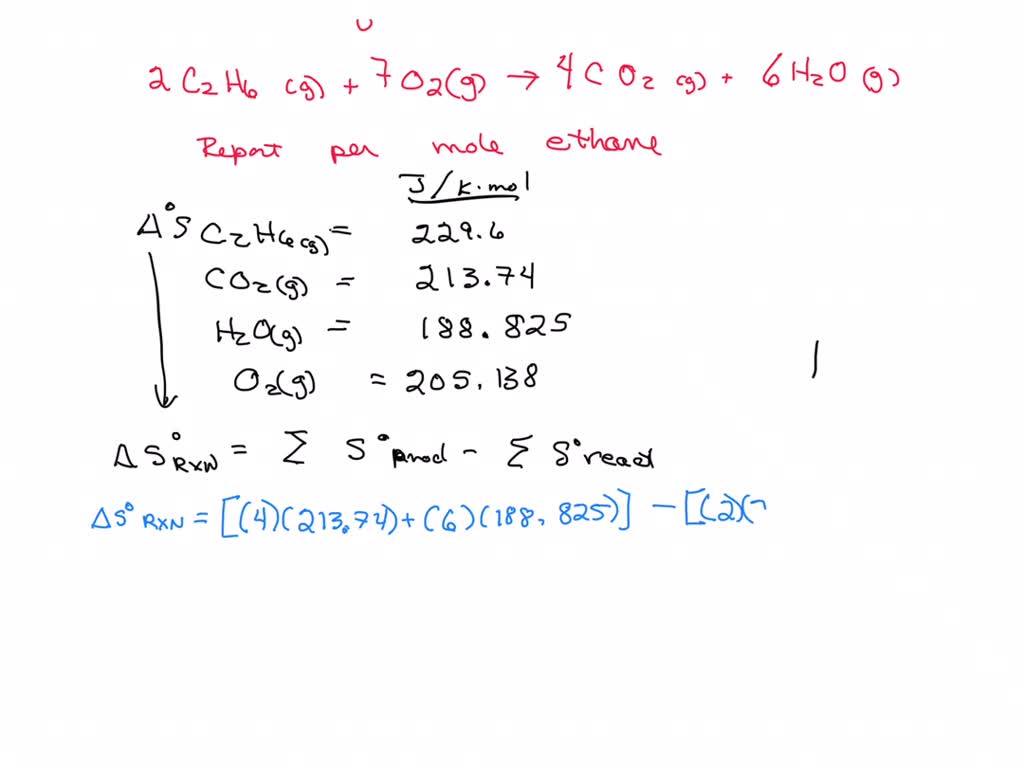 2 C2H6 (g) + 7 O2(g) → 4 CO2 (g) + 6 H2O (g)
Report per mole ethane
J/K·mol
Δ°S C2H6(g) = 229.6
CO2(g) = 213.74
H2O(g) = 188.825
O2(g) = 205.138
ΔS°RXN = Σ S°prod - Σ S°react
ΔS°RXN = [(4)(213.74)+(6)(188.825)] - [(2)(